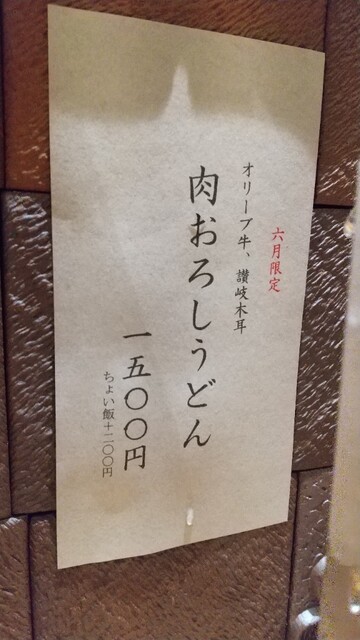 六月限定
オリーブ牛、讃岐木耳
肉おろしうどん
一五〇〇円
ちょい飯+二〇〇円